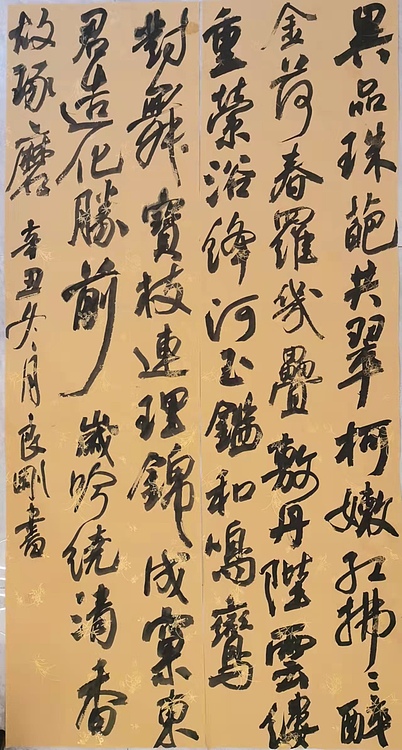 異品珠葩共翠柯嫩紅拂〻醉
金荷春羅幾疊敷丹陛雲縷
重縈浴絳河玉鑑和鳴鸞
對舞寶枝連理錦成窠東
君造化勝前歲吟繞清香
故琢磨 辛丑冬月良剛書